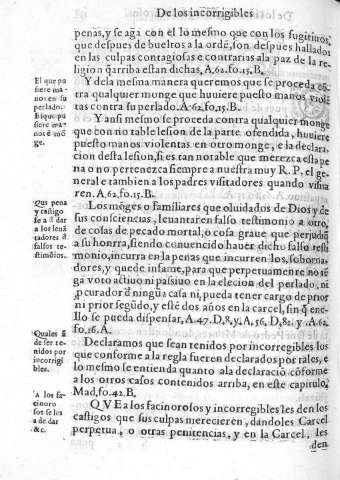 De los incorrigibles
penas, y se aga con el lo mesmo que con los fugitiuos,
que despues de bueltos a la ordẽ, son despues hallados
en las culpas contagiosas e contrarias ala paz de la re-
ligion q̃ arriba estan dichas, A, 62. fo. 15. B.
El que pu
siere ma-
nos en su
perlado.
El que pu
siere mã-
nos ẽ mõ
ge.
Y dela mesma manera queremos que se proceda cõ-
tra qualquier monge que huuiere puesto manos violẽ
tas contra su perlado. A. 62. fo. 15. B.
Y ansi mesmo se proceda contra qualquier monge
que con notable lesion de la parte ofendida, huuiere
puesto manos violentas en otro monge, e la declara-
cion desta lesion, si es tan notable que merezca esta pe
na o no pertenezca siempre a nuestra muy R. P. el ge-
neral e tambien a los padres visitadores quando visita
ren. A. 62. fo. 15. B.
Que pena
y castigo
se a d̃ dar
a los leuã
tadores d̃
falsos te-
stimõios.
Los mõges o familiares que oluidados de Dios y de
sus consciencias, leuantarẽ falso testimonio a otro,
de cosas de pecado mortal, o cosa graue que perjudiq̃
a su honrra, siendo conuencido hauer dicho falso testi
monio, incurra en las penas que incurren los, soborna-
dores, y quede infame, para que perpetuamẽte no tẽ
ga voto actiuo ni passiuo en la elecion del perlado, ni
p̃curador d̃ ningũa casa ni, pueda tener cargo de prior
ni prior segũdo, y estẽ dos años en la carcel, sin q̃ enel-
llo se pueda dispensar, A. 47. D, 8, y, A, 56, D, 82. y A. 62.
fo, 16. A.
Quales ã
de ser te-
nidos por
incorrigi
bles.
Declaramos que sean tenidos por incorregibles los
que conforme a la regla fueren declarados por tales, e
lo mesmo se entienda quanto ala declaraciõ cõforme
a los otros casos contenidos arriba, en este capitulo,
Mad, fo. 42. B.
A los fa-
cinoro
sos se les
a de dar
&c.
QVE a los facinorosos y incorregibles les den los
castigos que sus culpas merecieren, dandoles Carcel
perpetua, o otras penitencias, y en la Carcel, les
den